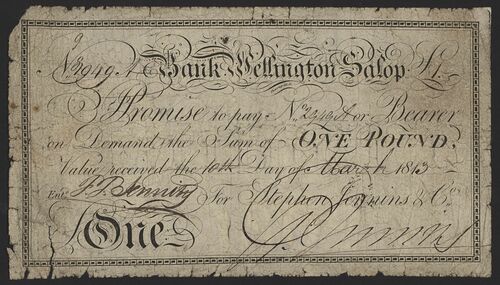 9
No 2949 A Bank Wellington Salop £1.
I Promise to pay No 2949 A or Bearer
on Demand the Sum of ONE POUND,
Value received the 10th Day of March 1813
Entd For Stephen Jennins & Co
One